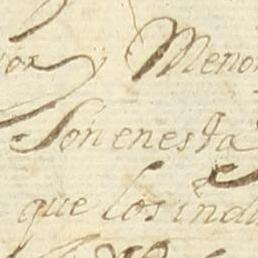 y Menor
Son en esta
que los indi